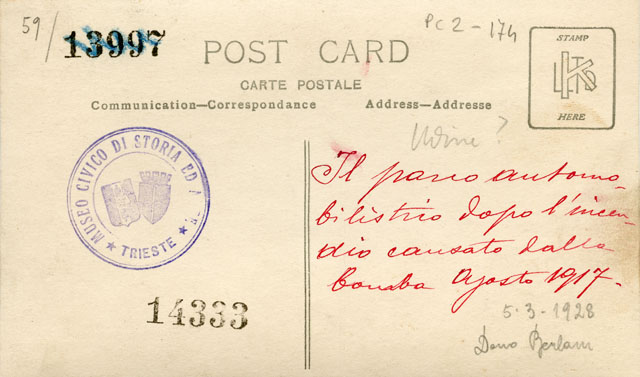 59/
13997
PC 2 - 174
POST CARD
CARTE POSTALE
Communication—Correspondance
Address—Addresse
STAMP
HERE
Udine?
MUSEO CIVICO DI STORIA ED
★ TRIESTE ★
Il parco automo-
bilistrio dopo l'incen-
dio causato dalla
bomba Agosto 1917.
14333
5-3-1928
Dono